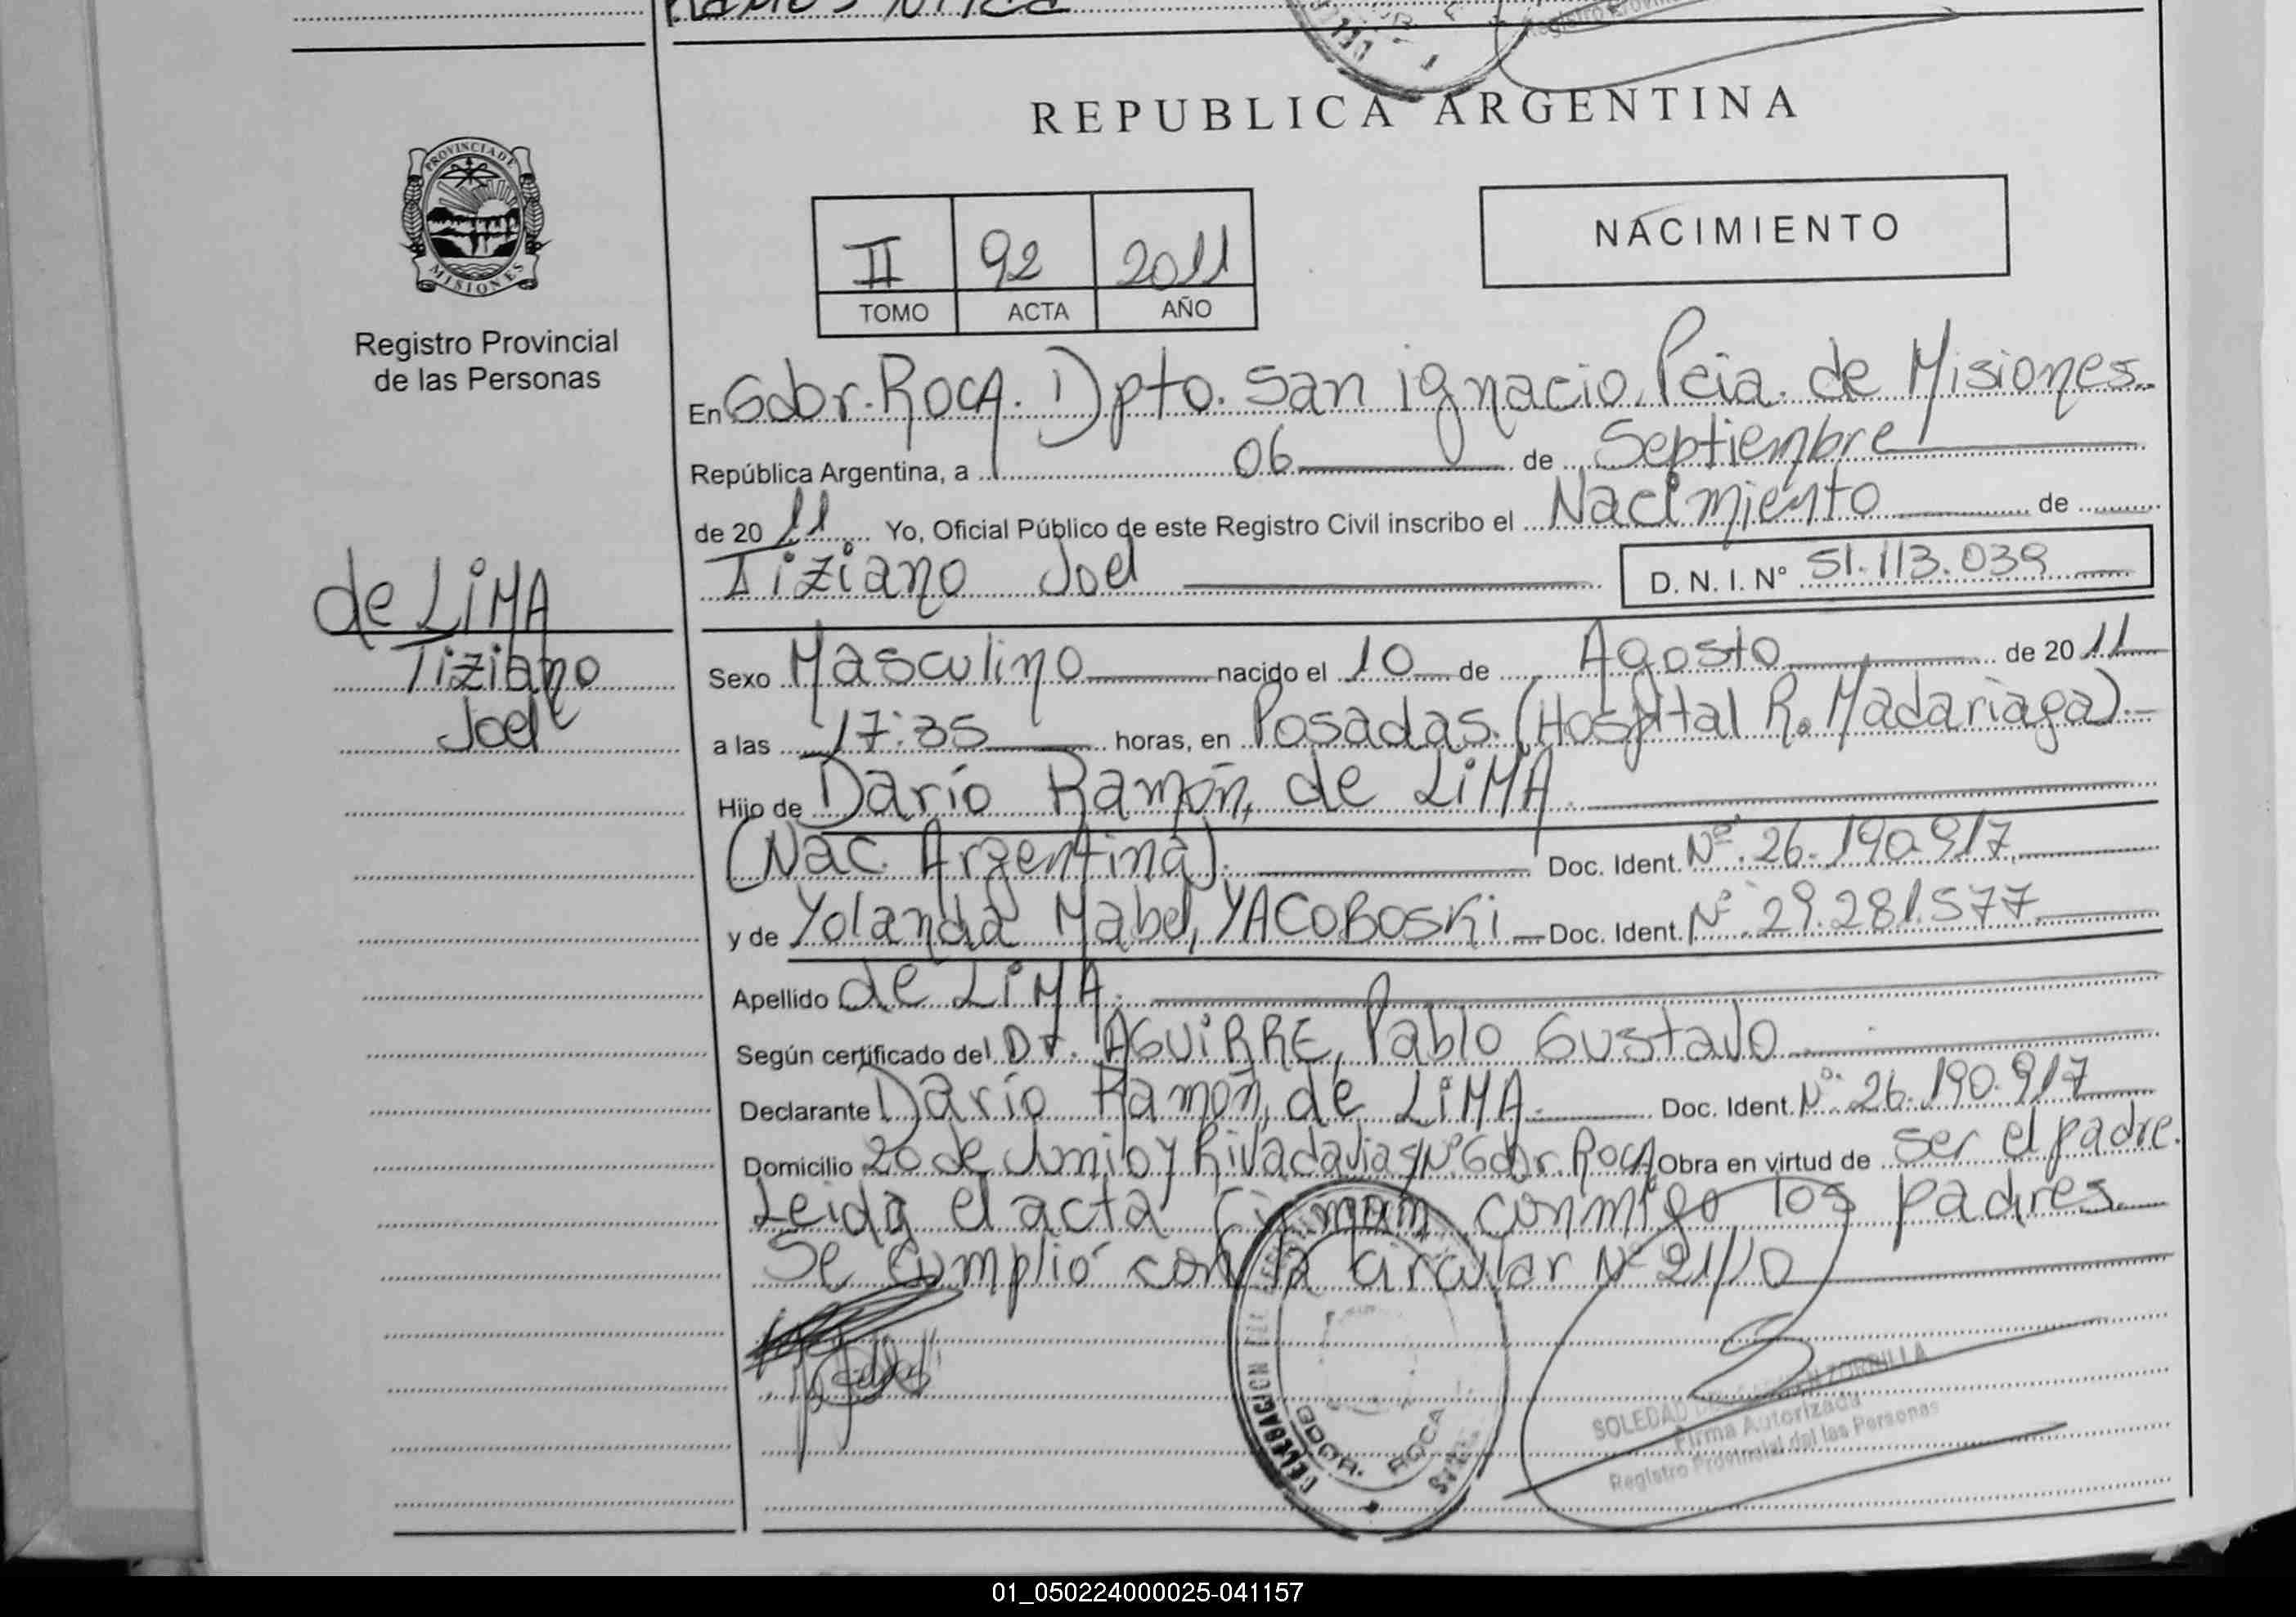 REPUBLICA ARGENTINA
PROVINCIA DE
MISIONES
Registro Provincial
de las Personas
II 92 2011
TOMO ACTA AÑO
NACIMIENTO
En Gdor. ROCA. Dpto. San ignacio, Pcia. de Misiones.
República Argentina, a 06 de Septiembre
de 2011 Yo, Oficial Público de este Registro Civil inscribo el Nacimiento de
Tiziano Joel D. N. I. N° 51.113.039
de LiMA
Tiziano
Joel
Sexo Masculino nacido el 10 de Agosto de 2011
a las 17:35 horas, en Posadas. (Hospital R. Madariaga).-
Hijo de Darío Ramón, de LiMA.
(Nac. Argentina). Doc. Ident. Nº. 26.190.917
y de Yolanda Mabel, YACOBOSKi Doc. Ident. Nº. 29.281.577
Apellido de LiMA.
Según certificado del Dr. AGUiRRE, Pablo Gustavo
Declarante Darío Ramón, de LiMA. Doc. Ident. Nº. 26.190.917
Domicilio 20 de Junio y Rivadavia S/Nº Gdor. ROCA Obra en virtud de ser el padre.
Leida el acta firman conmigo los padres
Se cumplió con la circular Nº 21/10
DELEGACION DEL
GDOR. ROCA
SOLEDAD ZORRILLA
Firma Autorizada
Registro Provincial del las Personas
01_050224000025-041157